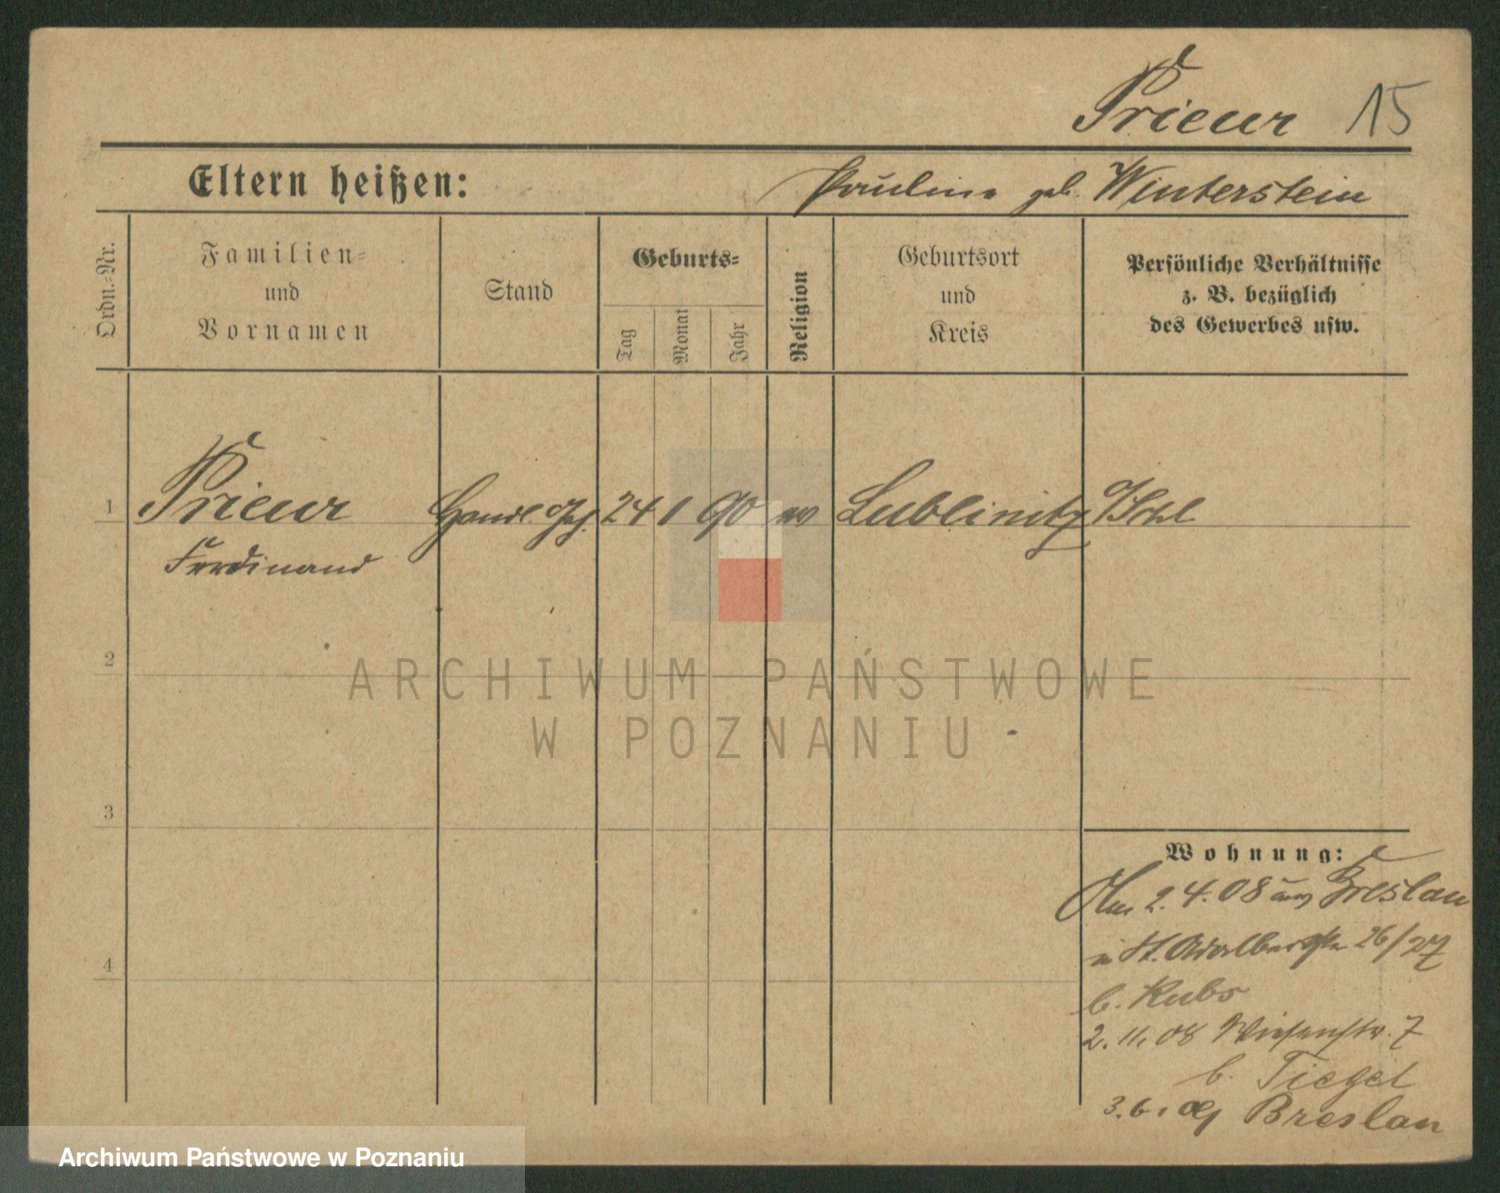 Prieur 15
Eltern heißen: Pauline geb. Winterstein
Ordn.-Nr.
Familien-
und
Vornamen
Stand
Geburts-
Tag
Monat
Jahr
Religion
Geburtsort
und
Kreis
Persönliche Verhältnisse
z. B. bezüglich
des Gewerbes usw.
1 Prieur Handl. 24 1 90 Lublinitz
Ferdinand
2
ARCHIWUM PAŃSTWOWE
W POZNANIU
3
4
Wohnung:
2.4.08 aus Breslau
St. Adalbertstr. 26/27
b. Kubs
2.11.08 Wiesenstr. 7
b. Tiegel
3.6. Breslau
Archiwum Państwowe w Poznaniu